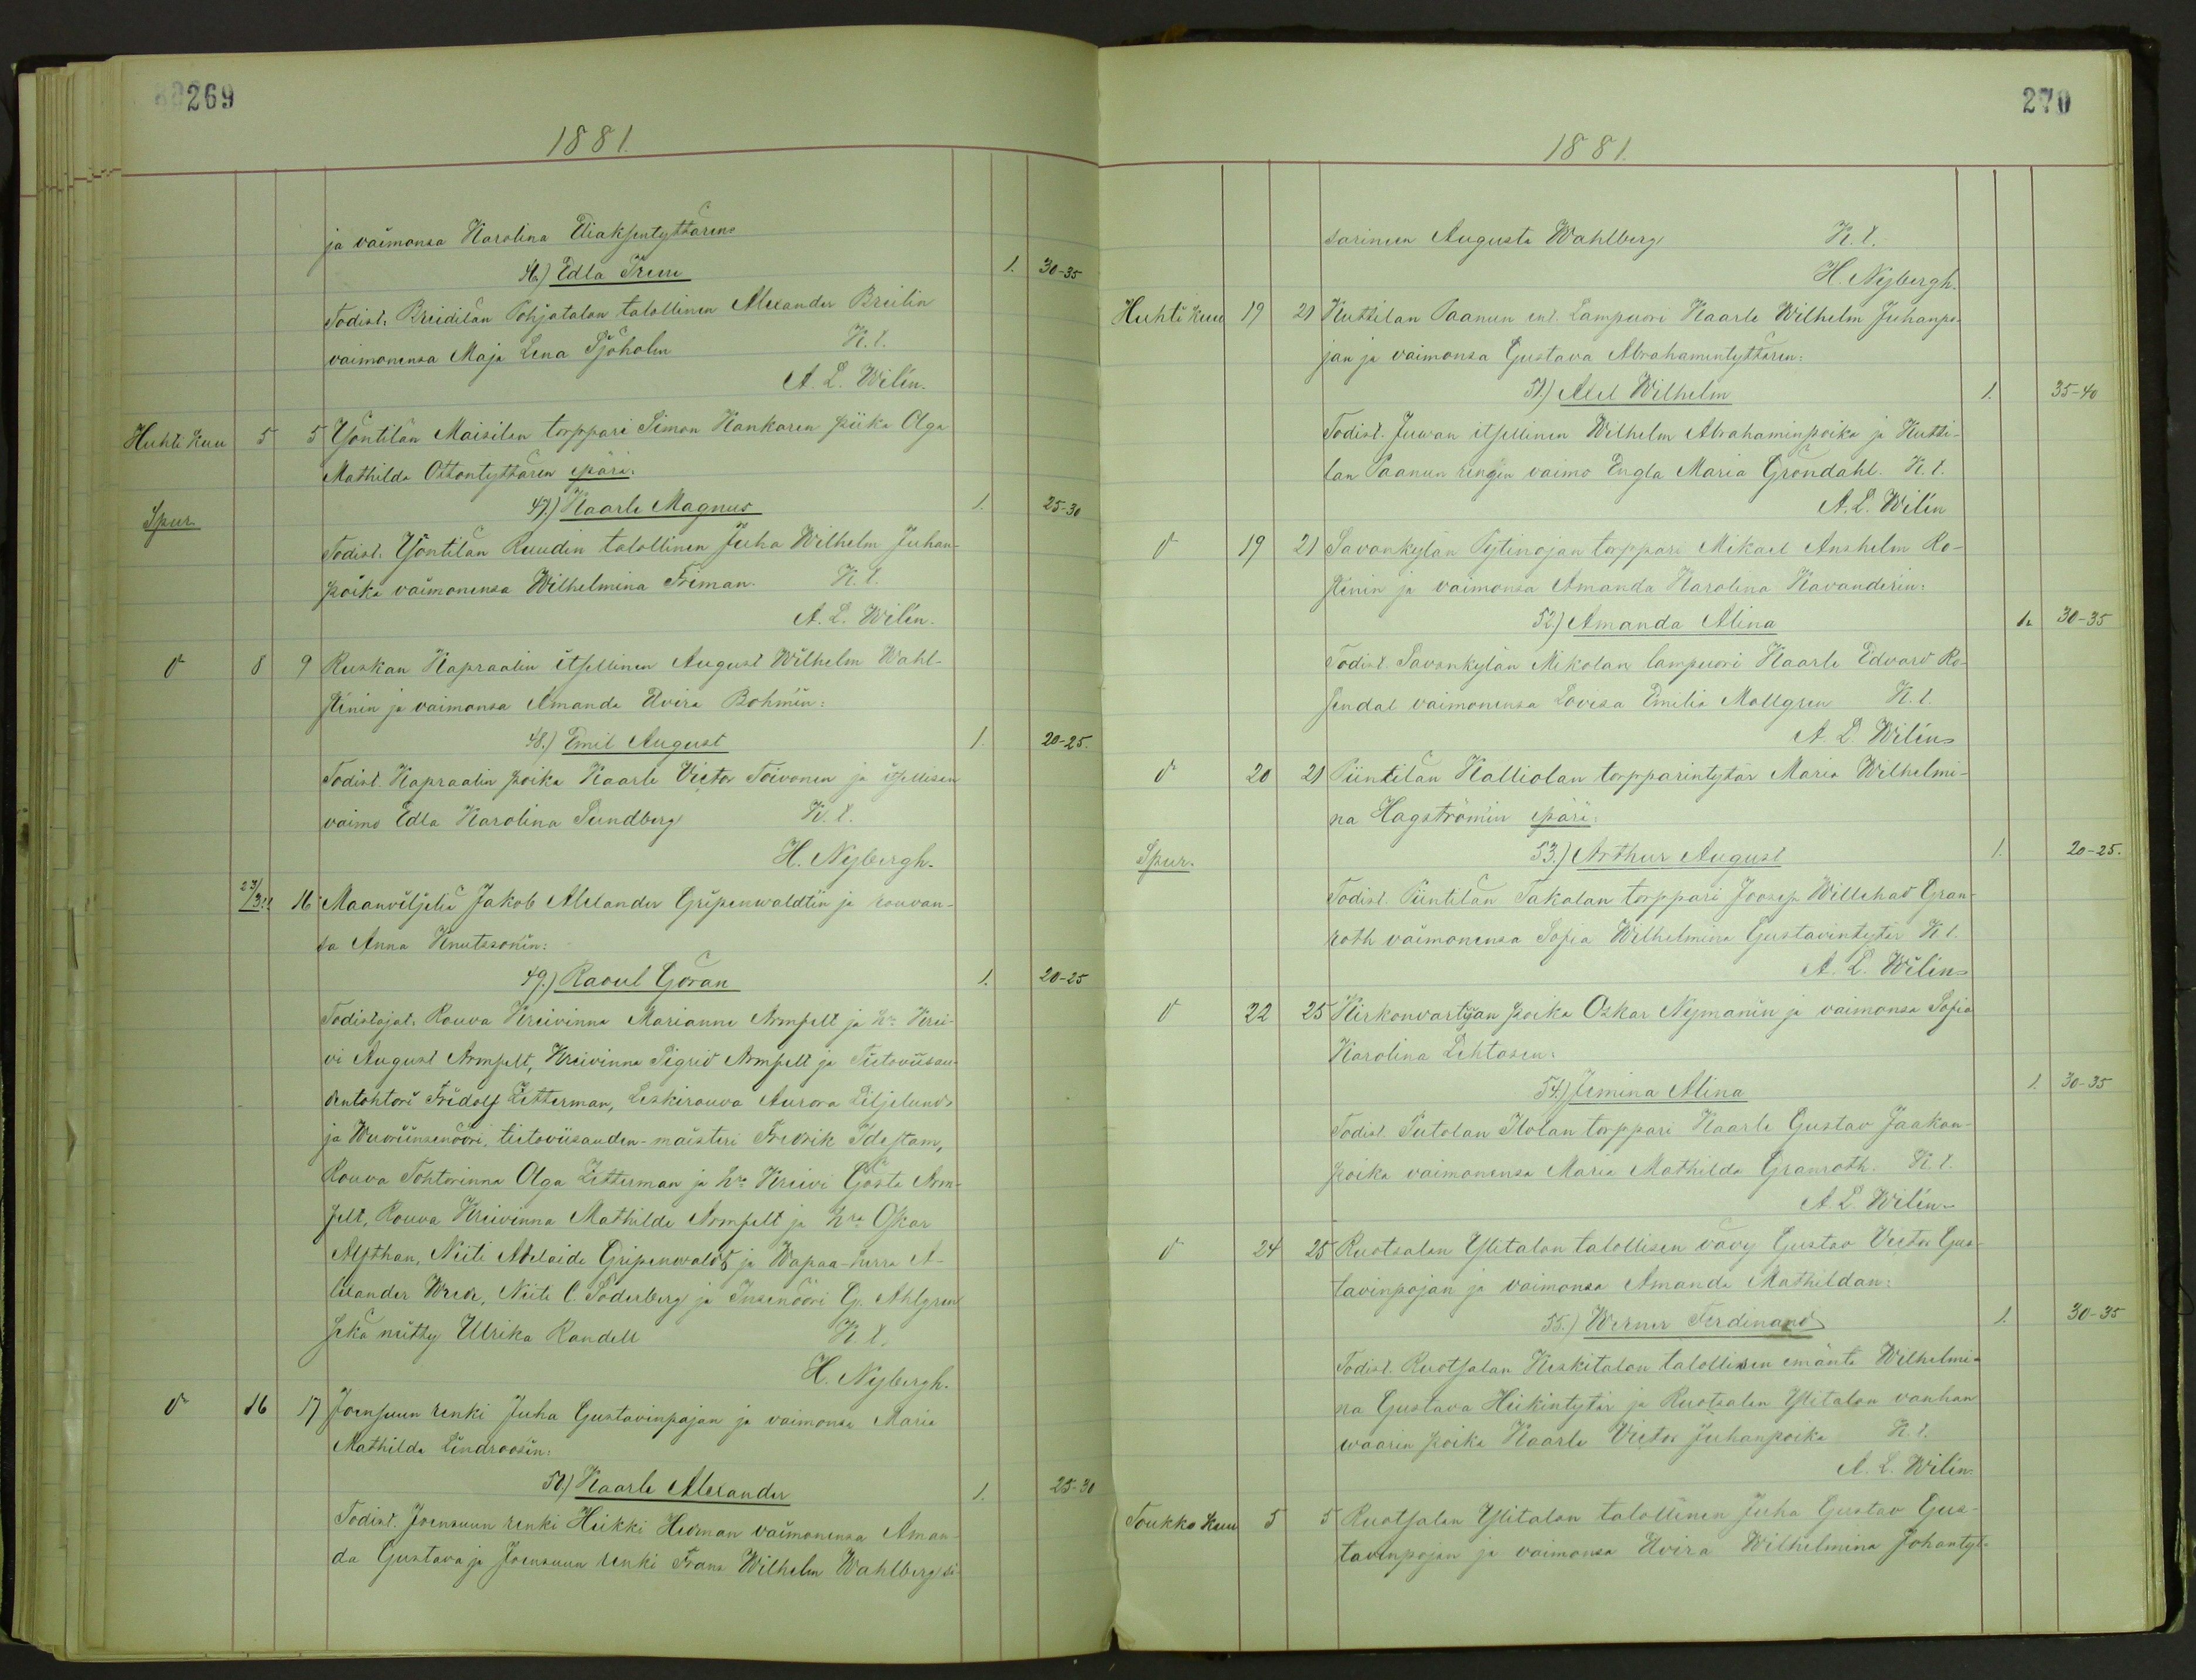 269
1881.
ja vaimonsa Karolina Eliaksentyttären
46.) Edla Irene 1. 30-35
Todist. Breidilän Pohjatalon talollinen Alexander Breilin
vaimonensa Maja Lena Sjöholm K. l.
A. L. Wilén.
Huhti Kuu 5 5 Yöntilän Maisilan torppari Simon Kankaren piika Olga
Mathilda Ottontyttären epäri:
Spur. 47.) Kaarle Magnus 1. 25-30
Todist. Yöntilän Ruudin talollinen Juha Wilhelm Juhan-
poika vaimonensa Wilhelmina Friman. K. l.
A. L. Wilén.
8 9 Ruskan Kapraalin itsellinen August Wilhelm Wahl-
stenin ja vaimonsa Amanda Elvira Bohmin:
48.) Emil August 1. 20-25.
Todist. Kapraalin poika Kaarle Victor Toivonen ja itsellisen
vaimo Edla Karolina Sundberg K. l.
H. Nybergh.
23/3!! 16 Maanviljeliä Jakob Alexander Gripenwaldtin ja rouvan-
sa Anna Knutssonin:
49.) Raoul Göran 1. 20-25
Todistajat: Rouva Kreivinna Marianne Armfelt ja hra Krei-
vi August Armfelt, Kreivinna Sigrid Armfelt ja Tietoviisau-
dentohtori Fridolf Zitterman, Leskirouva Aurora Liljelund
ja Wuoriinsenööri, tietoviisauden-maisteri Fredrik Idestam,
Rouva Tohtorinna Olga Zitterman ja hra Kreivi Gösta Arm-
felt, Rouva Kreivinna Mathilda Armfelt ja hra Oskar
Alfthan, Neiti Adelaide Gripenwaldt ja Wapaa-herra A-
lexander Wrede, Neiti C. Söderberg ja Insenööri G. Ahlgren
sekä neitty Ulrika Randell K. l.
H. Nybergh.
16 17 Joensuun renki Juha Gustavinpojan ja vaimonsa Maria
Mathilda Lindroosin:
50.) Kaarle Alexander 1. 25-30
Todist. Joensuun renki Heikki Hedman vaimonensa Aman-
da Gustava ja Joensuun renki Frans Wilhelm Wahlberg si-
270
1881.
sarineen Augusta Wahlberg K. l.
H. Nybergh.
Huhti Kuu 19 21 Kuttilan Paanun ent. Lampuori Kaarle Wilhelm Juhanpo-
jan ja vaimonsa Gustava Abrahamintyttären:
51.) Axel Wilhelm 1. 35-40
Todist. Juvan itsellinen Wilhelm Abrahaminpoika ja Kutti-
lan Paanun rengin vaimo Engla Maria Gröndahl. K. l.
A. L. Wilén
19 21 Savonkylän Pytinojan torppari Mikael Anshelm Ro-
stenin ja vaimonsa Amanda Karolina Kavanderin:
52.) Amanda Alina 1. 30-35
Todist. Savonkylän Mikolan lampuori Kaarle Edvard Ro-
sendal vaimonensa Lovisa Emilia Mollgren K. l.
A. L. Wilén
20 21 Piintilän Kalliolan torpparintytär Maria Wilhelmi-
na Hagströmin epäri:
Spur. 53.) Arthur August 1. 20-25.
Todist. Piintilän Takalan torppari Joosep Willehad Gran-
roth vaimonensa Sofia Wilhelmina Gustavintytär K. l.
A. L. Wilén
22 25 Kirkonvartijan poika Oskar Nymanin ja vaimonsa Sofia
Karolina Lehtosen:
54.) Jemina Alina 1. 30-35
Todist. Putolan Ilolan torppari Kaarle Gustav Jaakon-
poika vaimonensa Maria Mathilda Granroth. K. l.
A. L. Wilén
24 25 Ruotsalan Ylitalon talollisen vävy Gustav Victor Gus-
tavinpojan ja vaimonsa Amanda Mathildan:
55.) Werner Ferdinand 1. 30-35
Todist. Ruotsalan Keskitalon talollisen emäntä Wilhelmi-
na Gustava Heikintytär ja Ruotsalan Ylitalon vanhan
waarin poika Kaarle Victor Juhanpoika K. l.
A. L. Wilén.
Toukko Kuu 5 5 Ruotsalan Ylitalon talollinen Juha Gustav Gus-
tavinpojan ja vaimonsa Elvira Wilhelmina Johantyt-